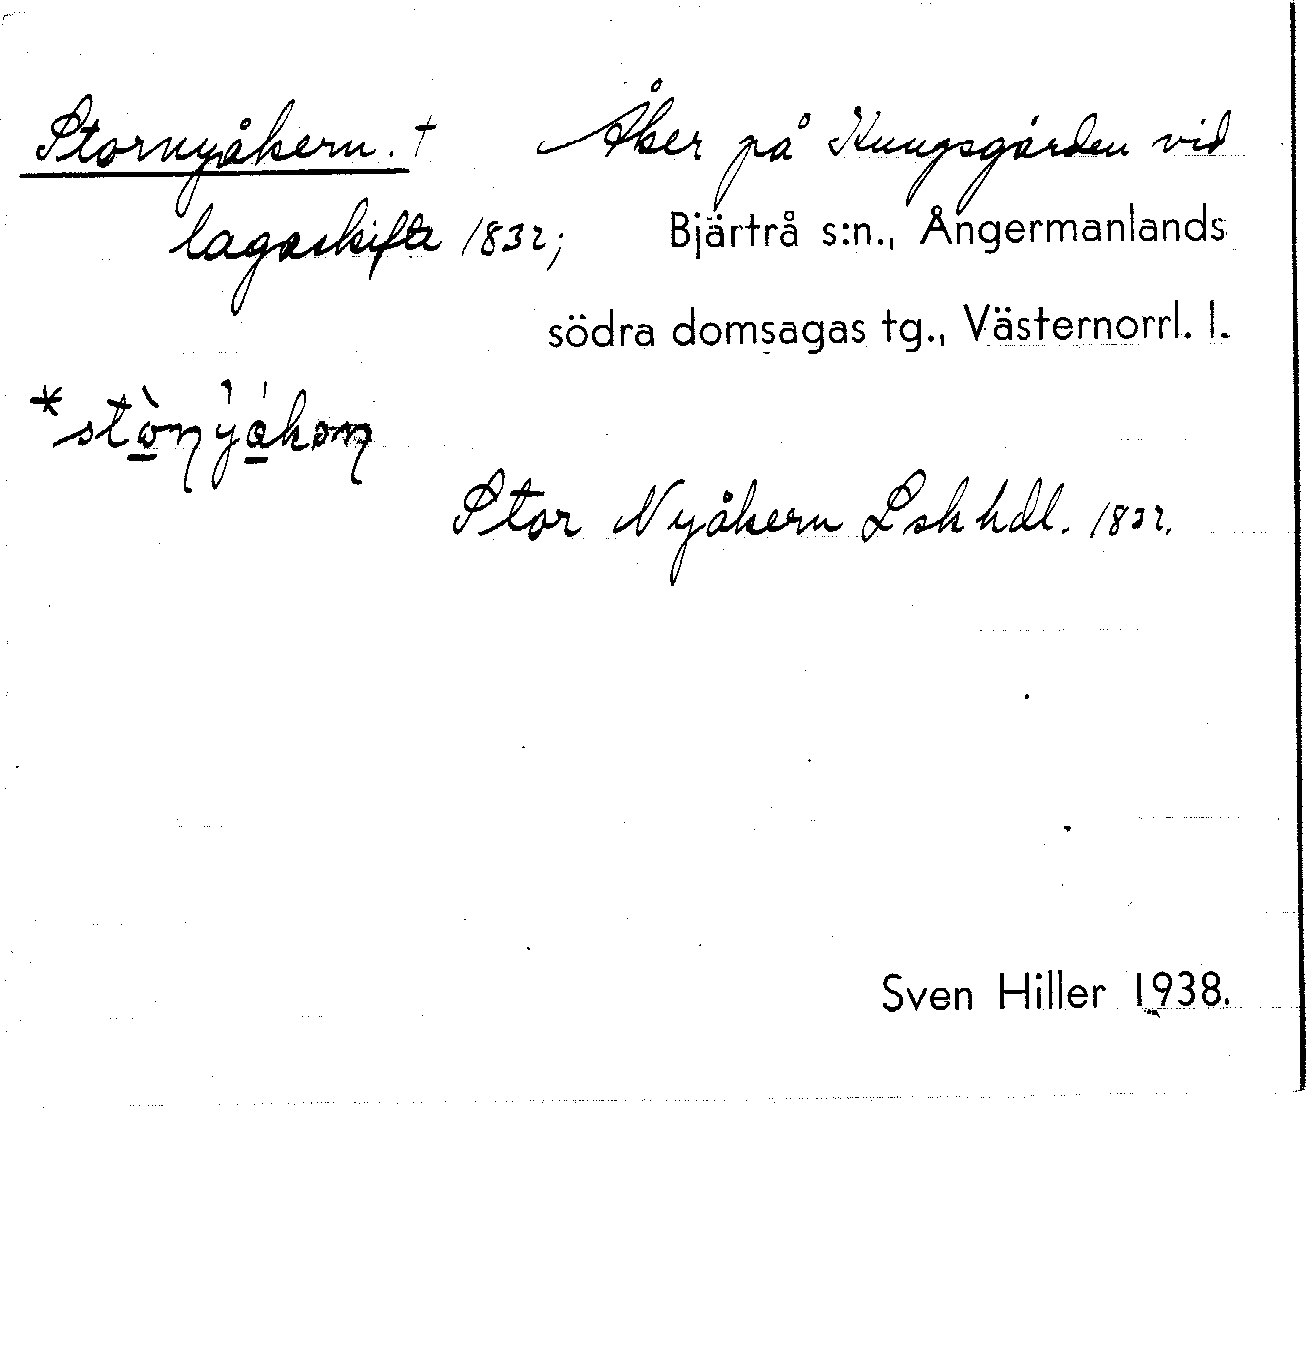 Stornyåkern. † Åker på Kungsgården vid
lagaskifte 1832; Bjärtrå s:n., Ångermanlands
södra domsagas tg., Västernorrl. l.
Stor Nyåkern Lskhdl. 1832.
Sven Hiller 1938.